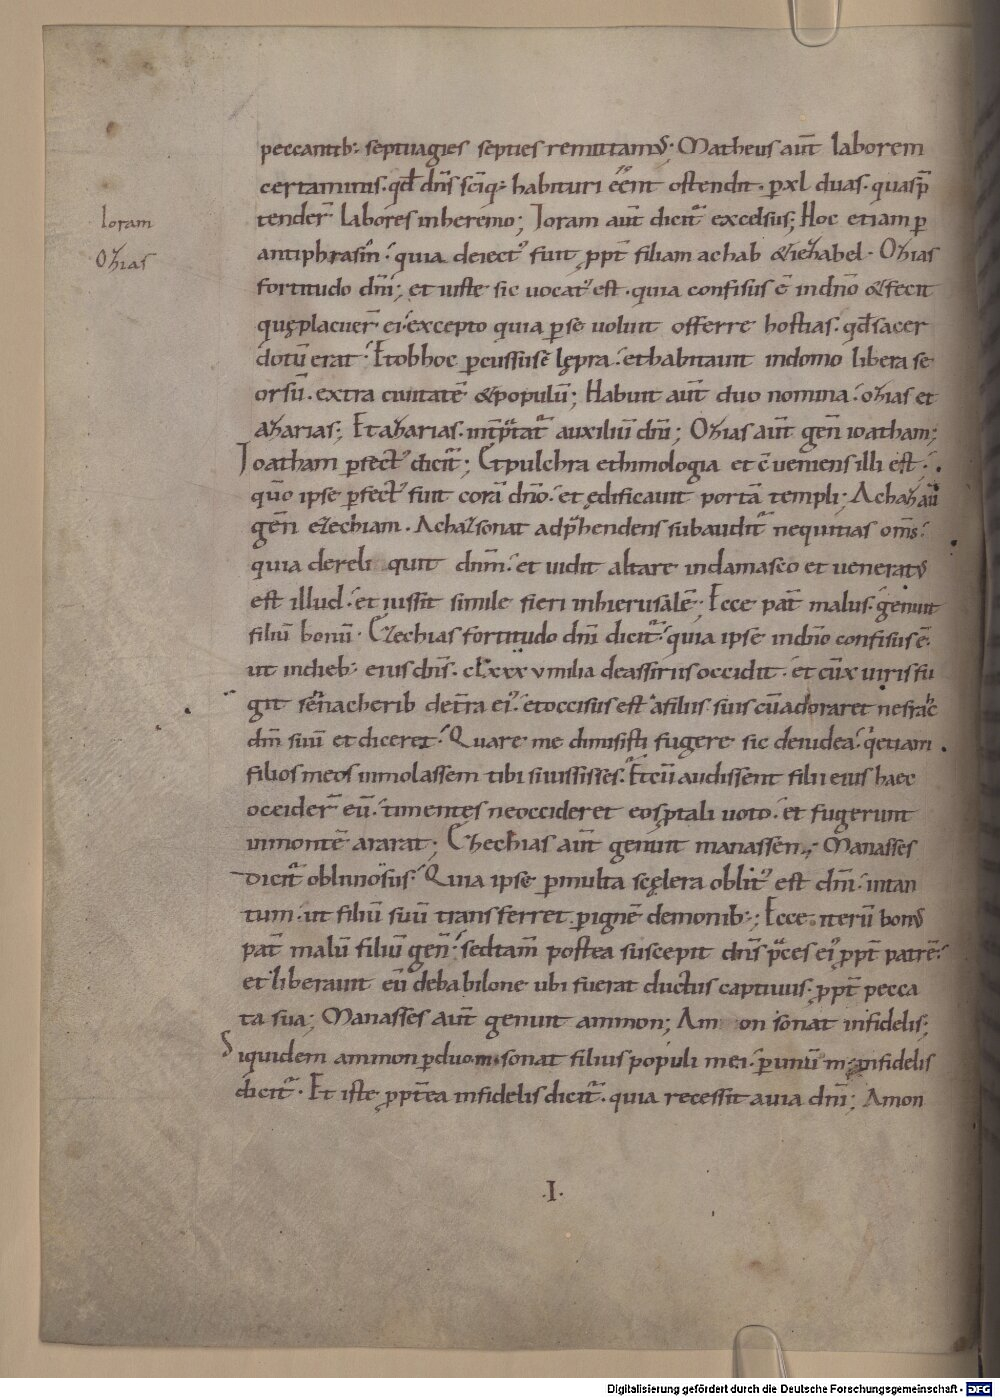 peccantib: septuagies septies remittamꝰ· Matheus aūt laborem
certaminis· qđ dn̄s sc̄iq; habituri eēnt ostendit· ꝑ xl duas· quasp̄
tender̄ labores inheremo; Ioram aūt dicit᷑ excelsus; Hoc etiam ꝑ
Ioram
antiphrasin· quia deiect᷒ fuit ꝓpt̄ filiam achab &iezabel· Ozias
Ozias
fortitudo dn̄i; et iuste sic uocat᷒ est· quia confisus ē indn̄o &fecit
quęplacuer̄ ei· excepto quia ꝑse uoluit offerre hostias· qđsacer
dotū erat· Etobhoc ꝑcussusē lępra· ethabitauit indomo libera se
orsū· extra ciuitatē &populū; Habuit aūt duo nomina· ozias et
azarias; Etazarias· int̄p̄tat᷑ auxiliū dn̄i; Ozias aūt gen̄ ioatham;
Ioatham ꝑfect᷒ dicit᷑; Etpulchra ethimologia et c̄ueniens illi est·
quō ipse ꝑfect᷒ fuit corā dn̄o· et ędificauit portā templi; Achaz aūt
gen̄ ezechiam· Achaz sonat adp̄hendens subaudit᷑ nequitias om̄s·
quia dereli quit dn̄m· et uidit altare indamasco et ueneratꝰ
est illud· et iussit simile fieri inhierusalē; Ecce pat̄ malus· genuit
filiū bonū· Ezechias fortitudo dn̄i dicit᷑· quia ipse indn̄o confisus ē·
ut indieb: eius dn̄s· clxxx v milia deassiriis occidit· et cū x uiris fu
git sennacherib det̄ra ei᷒· etoccisus est afiliis suis cūadoraret nesrac
dm̄ suū et diceret· Quare me dimisisti fugere sic deuidea· q̇etiam
filios meos immolassem tibi siuississes· Etcū audissent filii eius haec
occider̄ eū· timentes neoccideret eosp̄tali uoto· et fugerunt
inmontē ararat; Ezechias aūt genuit manassen; Manasses
dicit᷑ obliuiosus· Quia ipse ꝑmulta scęlera oblit᷒ est dn̄i· intan
tum· ut filiū suū transferret ꝑignē demonib:; Ecce iterū bonꝰ
pat̄ malū filiū gen̄· sedtam̄ postea suscepit dn̄s p̄ces ei᷒ ꝓpt̄ patrē·
et liberauit eū debabilone ubi fuerat ductus captiuus· ꝓpt̄ pecca
ta sua; Manasses aūt genuit ammon; Am on sonat infidelis;
Siquidem ammon ꝑduo·m·sonat filius populi mei· ꝑunū m· infidelis
dicit᷑· Et iste ꝓpt̄ea infidelis dicit᷑· quia recessit auia dn̄i; Amon
·I·
Digitalisierung gefördert durch die Deutsche Forschungsgemeinschaft - DFG